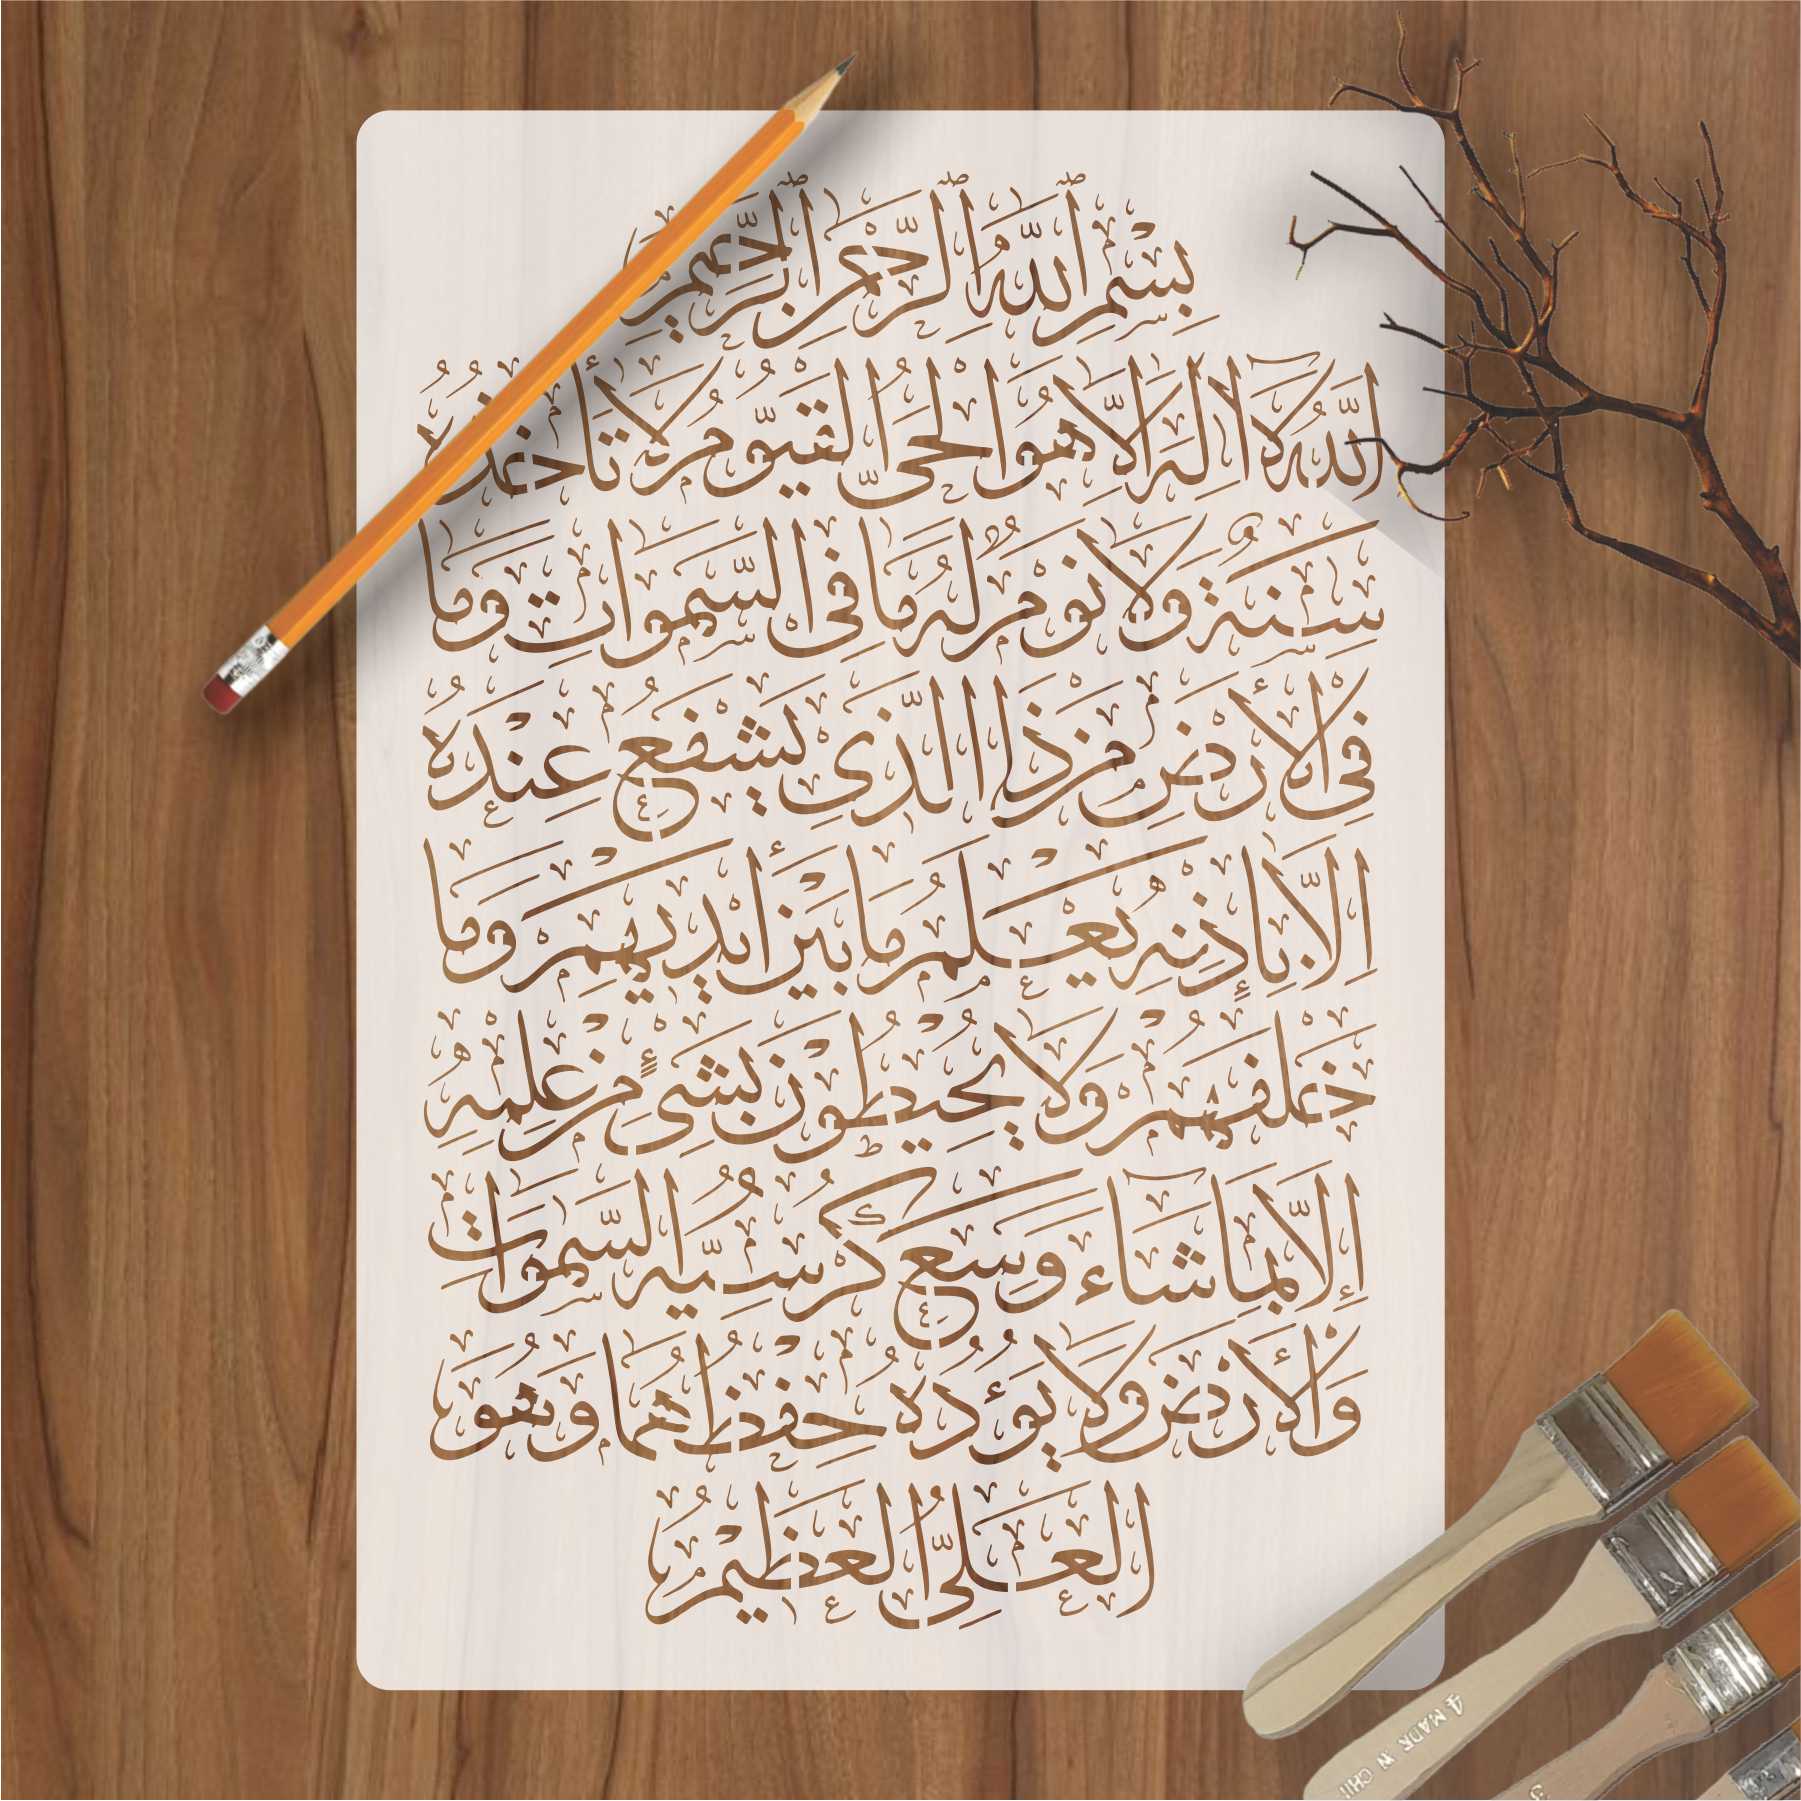 بِسْمِ ٱللَّهِ ٱلرَّحْمٰنِ ٱلرَّحِيمِ
اَللّٰهُ لَآ اِلٰهَ اِلَّا هُوَ الْحَىُّ الْقَيُّومُ لَا تَأْخُذُهُ
سِنَةٌ وَلَا نَوْمٌ لَهُ مَا فِى السَّمٰوَاتِ وَمَا
فِى الْأَرْضِ مَنْ ذَا الَّذِى يَشْفَعُ عِنْدَهُ
اِلَّا بِإِذْنِهِ يَعْلَمُ مَا بَيْنَ أَيْدِيهِمْ وَمَا
خَلْفَهُمْ وَلَا يُحِيطُونَ بِشَىْءٍ مِنْ عِلْمِهِ
إِلَّا بِمَا شَآءَ وَسِعَ كُرْسِيُّهُ السَّمٰوَاتِ
وَالْأَرْضَ وَلَا يَؤُدُهُ حِفْظُهُمَا وَهُوَ
الْعَلِىُّ الْعَظِيمُ
4 MADE IN CHI
3